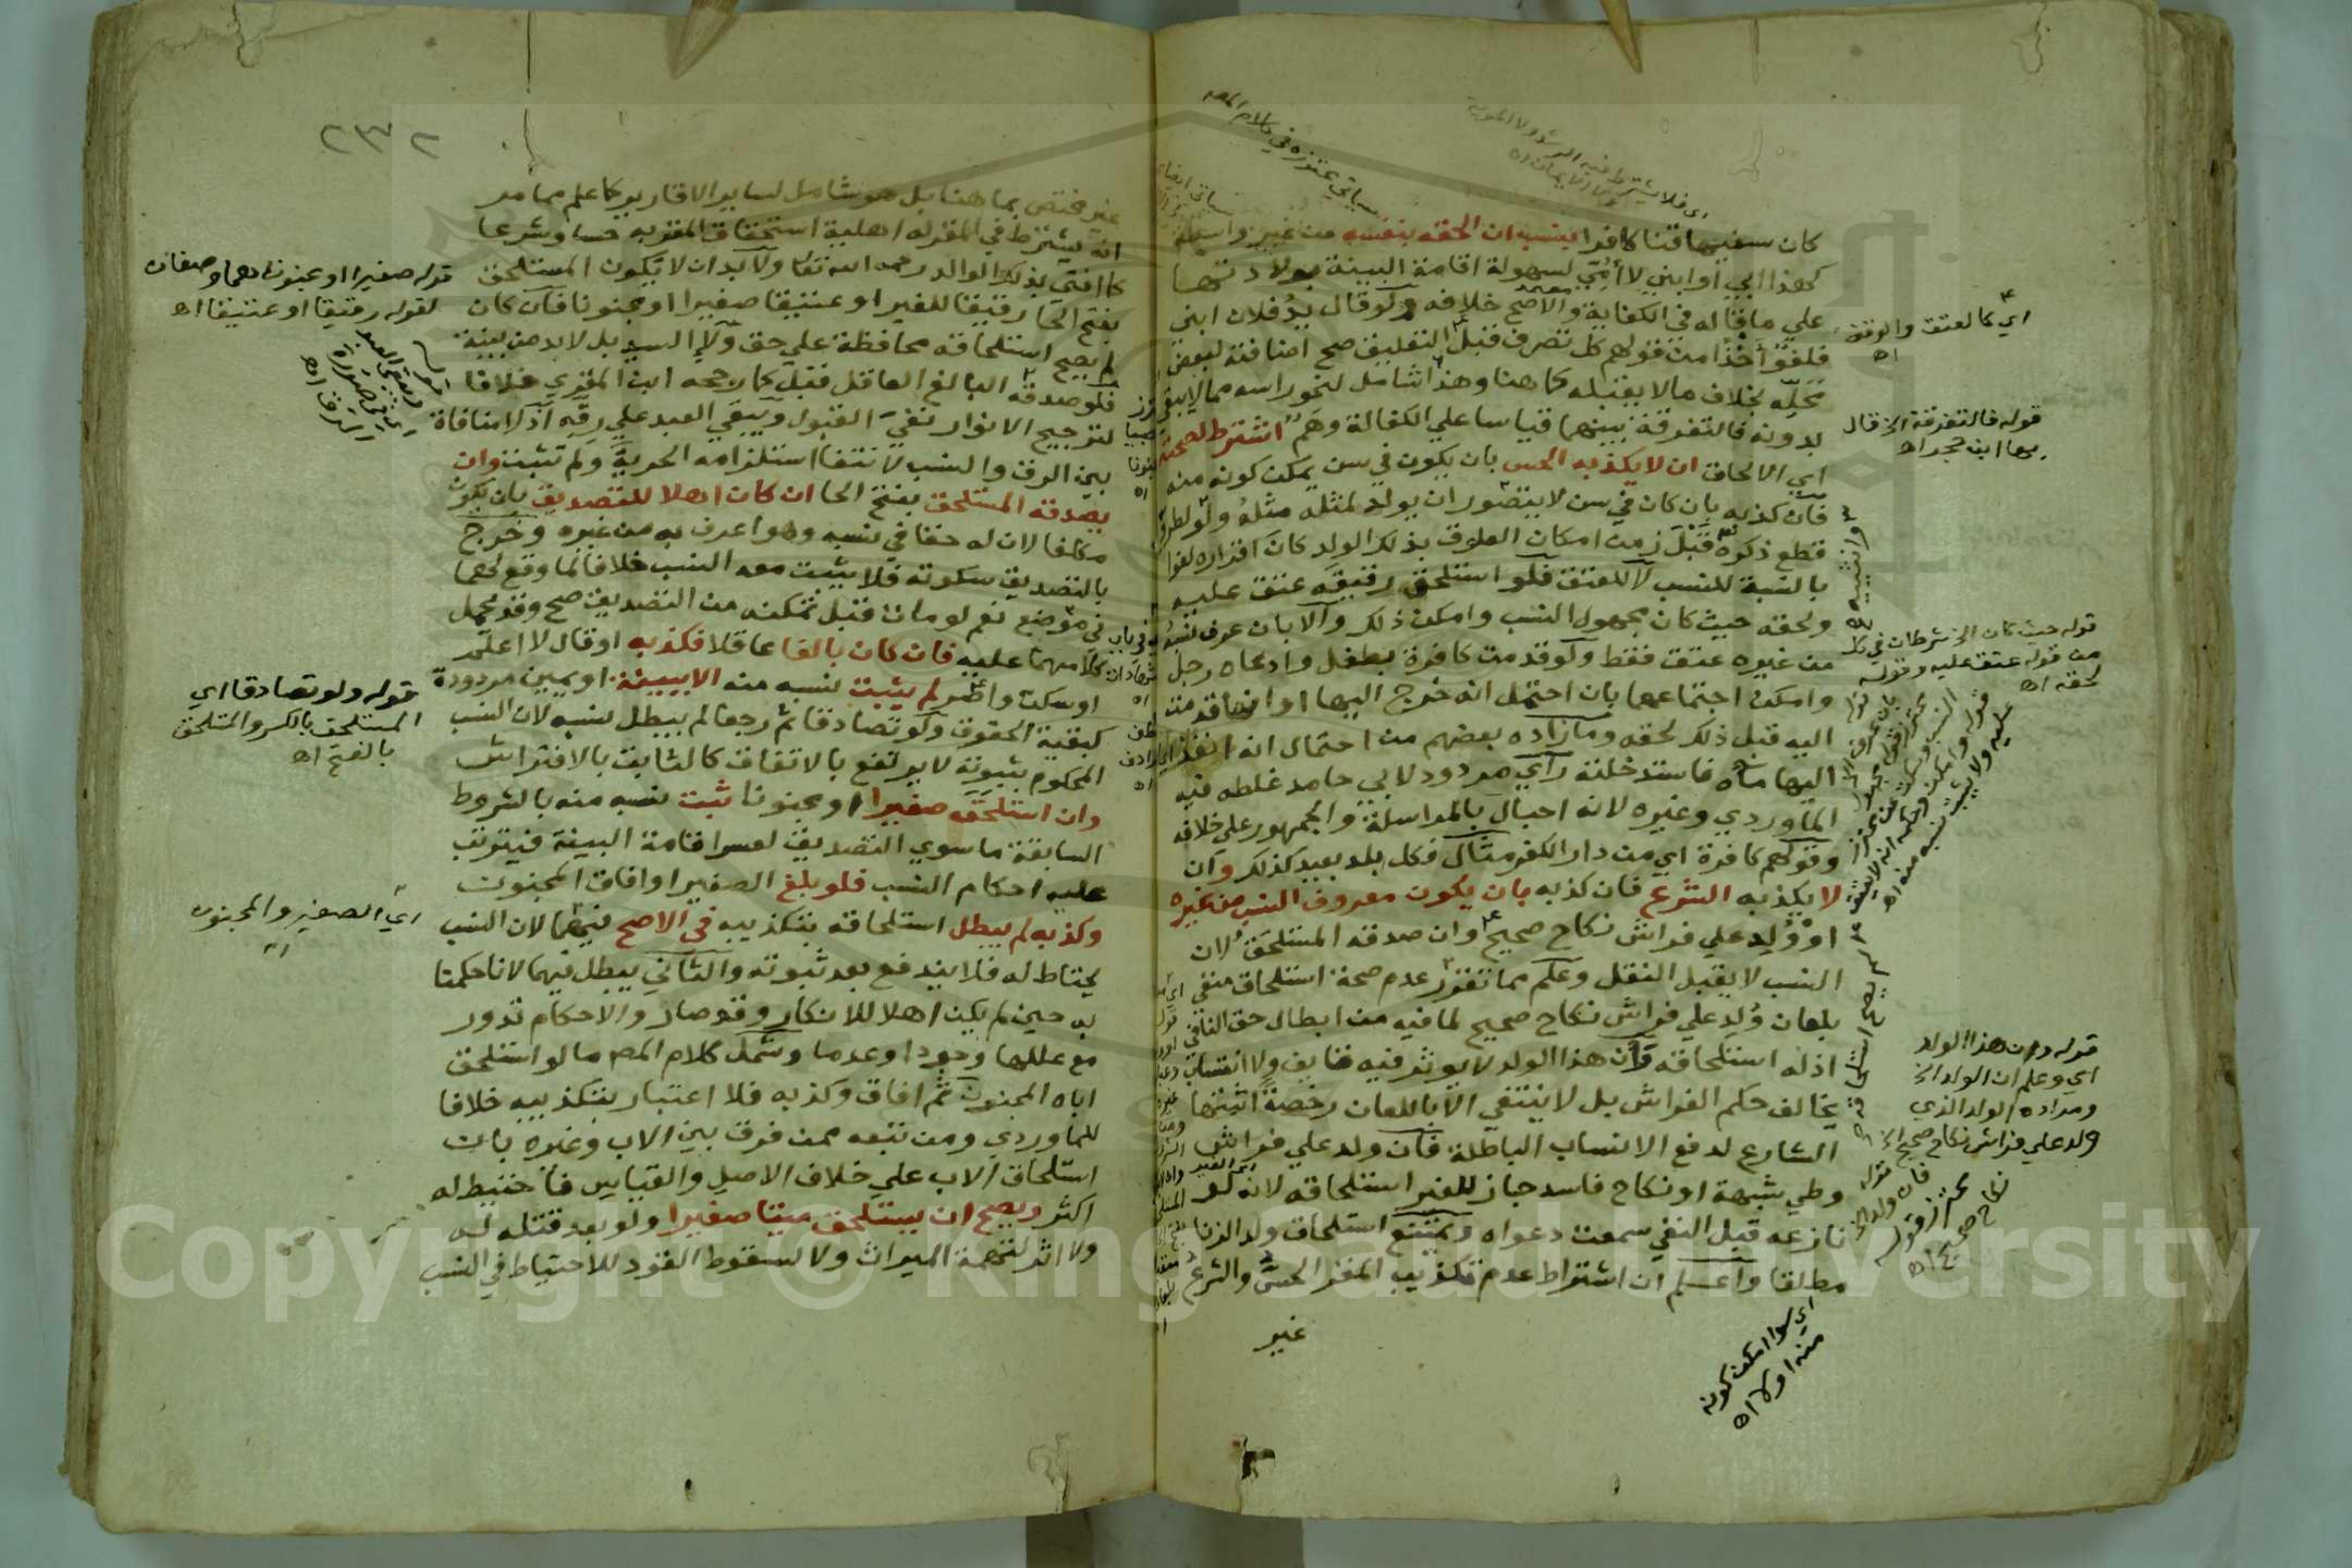 كان سفيها قنا كافرا لنسب ان الحقه بنفسه من غير واسطة
كهذا ابي أو ابني لا أمّي لسهولة اقامة البينة بولادتها
علي ما قاله في الكفاية والاصح خلافه ولو قال يد فلان ابني
فلغو أخذا من قولهم كل تصرف قبل التعليق صح اضافته لبعض
محلّه بخلاف مالا يقبله كما هنا وهذا شامل لنحو راسه مما لا يبقي
بدونه فالتفرقة بينهما قياسا علي الكفالة وهَم اشترط لصحته
اي الالحاق ان لا يكذبه الحس بان يكون في سن يمكن كونه منه
فان كذبه بان كان في سن لا يتصور ان يولد لمثله مثله ولو لطرو
قطع ذكره قَبْلَ زمن امكان العلوق بذلك الولد كان اقراره لغوا
بالنسبة للنسب لا للعتق فلو استلحق رقيقه عتق عليه
ولحقه حيث كان مجهول النسب وامكن ذلك والا بان عرف نسبه
من غيره عتق فقط ولو قدمت كافرة بطفل وادعاه رجل
وامكن اجتماعهما بان احتمل انه خرج اليها او انها قدمت
اليه قبل ذلك لحقه وما زاده بعضهم من احتمال انه انفذ
اليها ماه فاستدخلته رأي مردود لابي حامد غلطه فيه
الماوردي وغيره لانه احبال بالمراسلة والجمهور علي خلافه
وقولهم كافرة اي من دار الكفر مثال فكل بلد بعيد كذلك وان
لا يكذبه الشرع فان كذبه بان يكون معروف النسب من غيره
او وُلِد علي فراش نكاح صحيح وان صدقه المستلحَق لان
النسب لا يقبل النقل وعلم مما تقرر عدم صحة استلحاق منفي
بلعان وُلد علي فراش نكاح صحيح لما فيه من ابطال حق النافي
اذ له استلحاقه وأن هذا الولد لا يوثر فيه قايف ولا انتساب
يخالف حكم الفراش بل لا ينتفي الا باللعان رخصة اثبتها
الشارع لدفع الانساب الباطلة فان ولد علي فراش
وطي شبهة او نكاح فاسد جاز للغير استلحاقه لانه لو
نازعه قبل النفي سمعت دعواه ويمتنع استلحاق ولد الزنا
مطلقا واعلم ان اشتراط عدم تكذيب المقر الحسُّ والشرعُ
غير
سياتي محترزه في كلام المص
اي كالعتق والوقف
اه
قوله فالتفرقة الخ قال
بها ابن حجر اه
قوله حيث كان الخ شرطان في كل
من قوله عتق عليه وقوله
لحقه اه
قوله وان هذا الولد
اي وعلم ان الولد الخ
ومراده الولد الذي
ولد علي فراش نكاح صحيح الخ
قوله
فان ولد الخ
محترز قوله
نكاح صحيح اه
اي سوا امكن كونه
منه او لا اه
٢٣٢
غير مختص بما هنا بل هو شامل لساير الاقارير كما علم مما مر
انه يشترط في المقر له اهلية استحقاق المقر به حسا وشرعا
كما افتي بذلك الوالد رحمه الله تعا ولا بد ان لا يكون المستلحق
بفتح الحا رقيقا للغير او عتيقا صغيرا او مجنونا فان كان
لم يصح استلحاقه محافظة علي حق ولاء السيد بل لا بد من بينة
فلو صدقه البالغ العاقل فقبل كما رجحه ابن المقري خلافا
لترجيح الانوار نفي القبول ويبقي العبد علي رقه اذ لا منافاة
بين الرق والنسب لانتفا استلزامه الحرية ولم تثبت وان
يصدقه المستلحق بفتح الحا ان كان اهلا للتصديق بان يكون
مكلفا لان له حقا في نسبه وهو اعرف به من غيره وخرج
بالتصديق سكوته فلا يثبت معه النسب خلافا لما وقع لهما
في موضع نعم لو مات قبل تمكنه من التصديق صح وقد يحمل
كلامهما عليه فان كان بالغا عاقلا فكذبه او قال لا اعلم
او سكت واصر لم يثبت نسبه منه الا ببينة او يمين مردودة
كبقية الحقوق ولو تصادقا ثم رجعا لم يبطل نسبه لان النسب
المحكوم بثبوته لا يرتفع بالاتفاق كالثابت بالافتراش
وان استلحق صغيرا او مجنونا ثبت نسبه منه بالشروط
السابقة ما سوي التصديق لعسر اقامة البينة فيترتب
عليه احكام النسب فلو بلغ الصغير او افاق المجنون
وكذبه لم يبطل استلحاقه بتكذيبه في الاصح فيهما لان النسب
يحتاط له فلا يندفع بعد ثبوته والثاني يبطل فيهما لانا حكمنا
به حين لم يكن اهلا للانكار وقد صار والاحكام تدور
مع عللها وجودا وعدما وشمل كلام المص ما لو استلحق
اباه المجنون ثم افاق وكذبه فلا اعتبار بتكذيبه خلافا
للماوردي ومن تبعه ممن فرق بين الاب وغيره بان
استلحاق الاب علي خلاف الاصل والقياس فاحتيط له
اكثر ويصح ان يستلحق ميتا صغيرا ولو بعد قتله له
ولا اثر لتهمة الميراث ولا لسقوط القود للاحتياط في النسب
قوله صغيرا او مجنونا هما وصفان
لقوله رقيقا او عتيقا اه
قوله ولو تصادقا اي
المستلحق بالكسر والمستلحق
بالفتح اه
اي الصغير والمجنون
اه